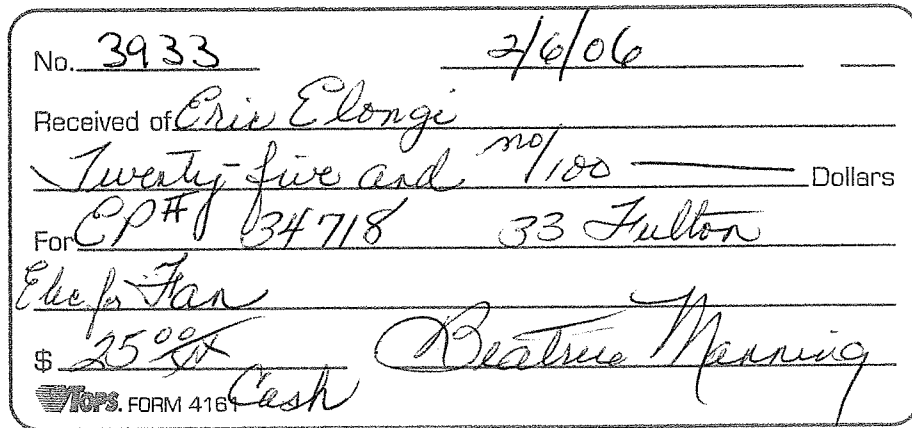 No. 3933 2/6/06
Received of Eric Elongi
Twenty-five and no/100 Dollars
For EP# 34718 33 Fulton
Elec for Fan
$ 25 00/xx Beatrice Manning
TOPS. FORM 4161 Cash